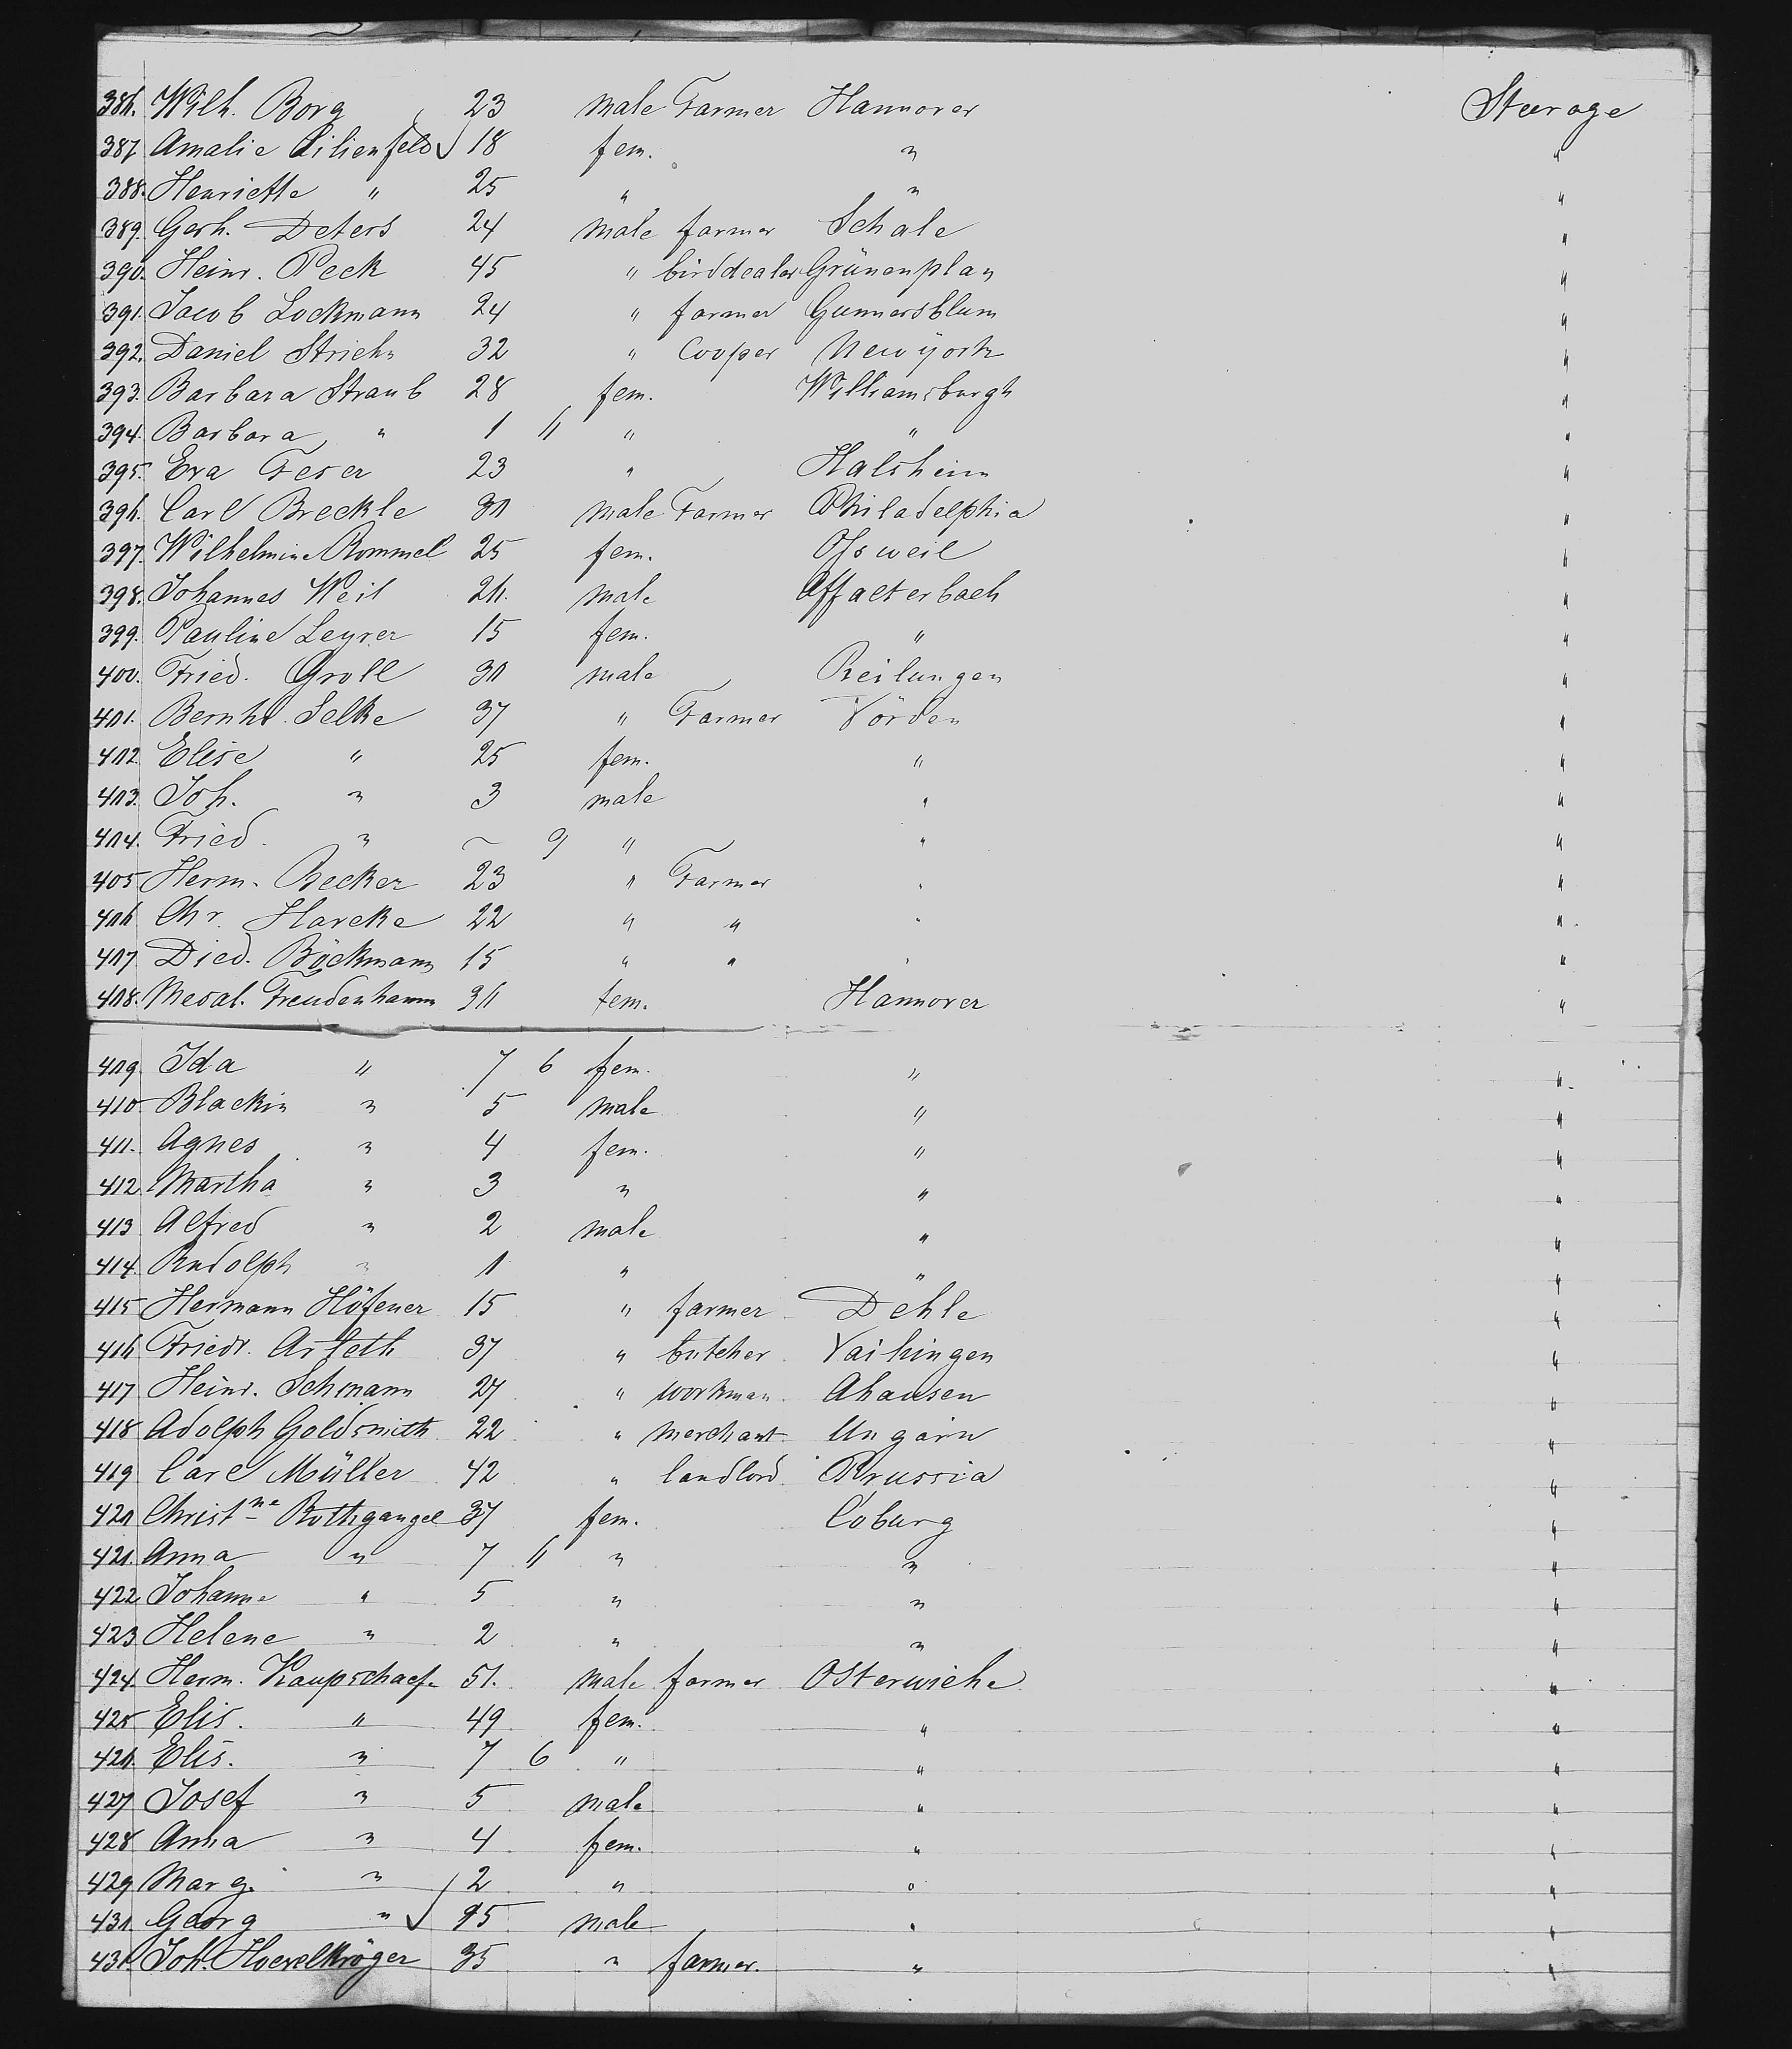 386. Wilh. Borg 23 male Farmer Hannover Steerage
387 Amalie Lilienfeld 18 fem. " "
388. Henriette " 25 " " "
389. Gerh. Deters 24 male farmer Schale "
390. Heinr. Peck 45 " birddealer Grünenplan "
391. Jacob Lockmann 24 " farmer Gunnersblum "
392. Daniel Striehn 32 " Cooper New york "
393. Barbara Straub 28 fem. Williamsburgh "
394. Barbara " 1 11 " " "
395. Eva Feser 23 " Halsheim "
396. Carl Breckle 30 male Farmer Philadelphia "
397. Wilhelmine Rommel 25 fem. Ofsweil "
398. Johannes Weil 26. male Affalterbach "
399. Pauline Leyrer 15 fem. " "
400. Fried. Groll 30 male Reilungen "
401. Bernhd. Selke 37 " Farmer Vörden "
402 Elise " 25 fem. " "
403. Joh. " 3 male " "
404. Fried. " ~ 9 " " "
405 Herm. Becker 23 " Farmer " "
406 Chr. Harcke 22 " " " "
407 Died. Böckmann 15 " " " "
408. Medal. Freudenhamm 36 fem. Hannover "
409. Ida " 7 6 fem. " "
410 Blackin " 5 male " "
411. Agnes " 4 fem. " "
412. Martha " 3 " " "
413 Alfred " 2 male " "
414. Rudolph " 1 " " "
415 Hermann Höfener 15 " farmer Dehle "
416 Friedr. Arleth 37 " butcher Vaihingen "
417 Heinr. Schmann 27 " workman Ahausen "
418 Adolph Goldsmith 22 " merchant Ungarn "
419 Carl Müller 42 " landlord Prussia "
420 Christne Rothgangel 37 fem. Coburg "
421. Anna " 7 11 " " "
422 Johanne " 5 " " "
423 Helene " 2 " " "
424. Herm. Kaupschaefe 51. male farmer Osterwiehe "
425 Elis. " 49 fem. " "
426. Elis. " 7 6 " " "
427 Josef " 5 male " "
428 Anna " 4 fem. " "
429 Marg. " 2 " " "
430. Georg " 95 male " "
431. Joh. Hoevelkröger 35 " farmer. " "